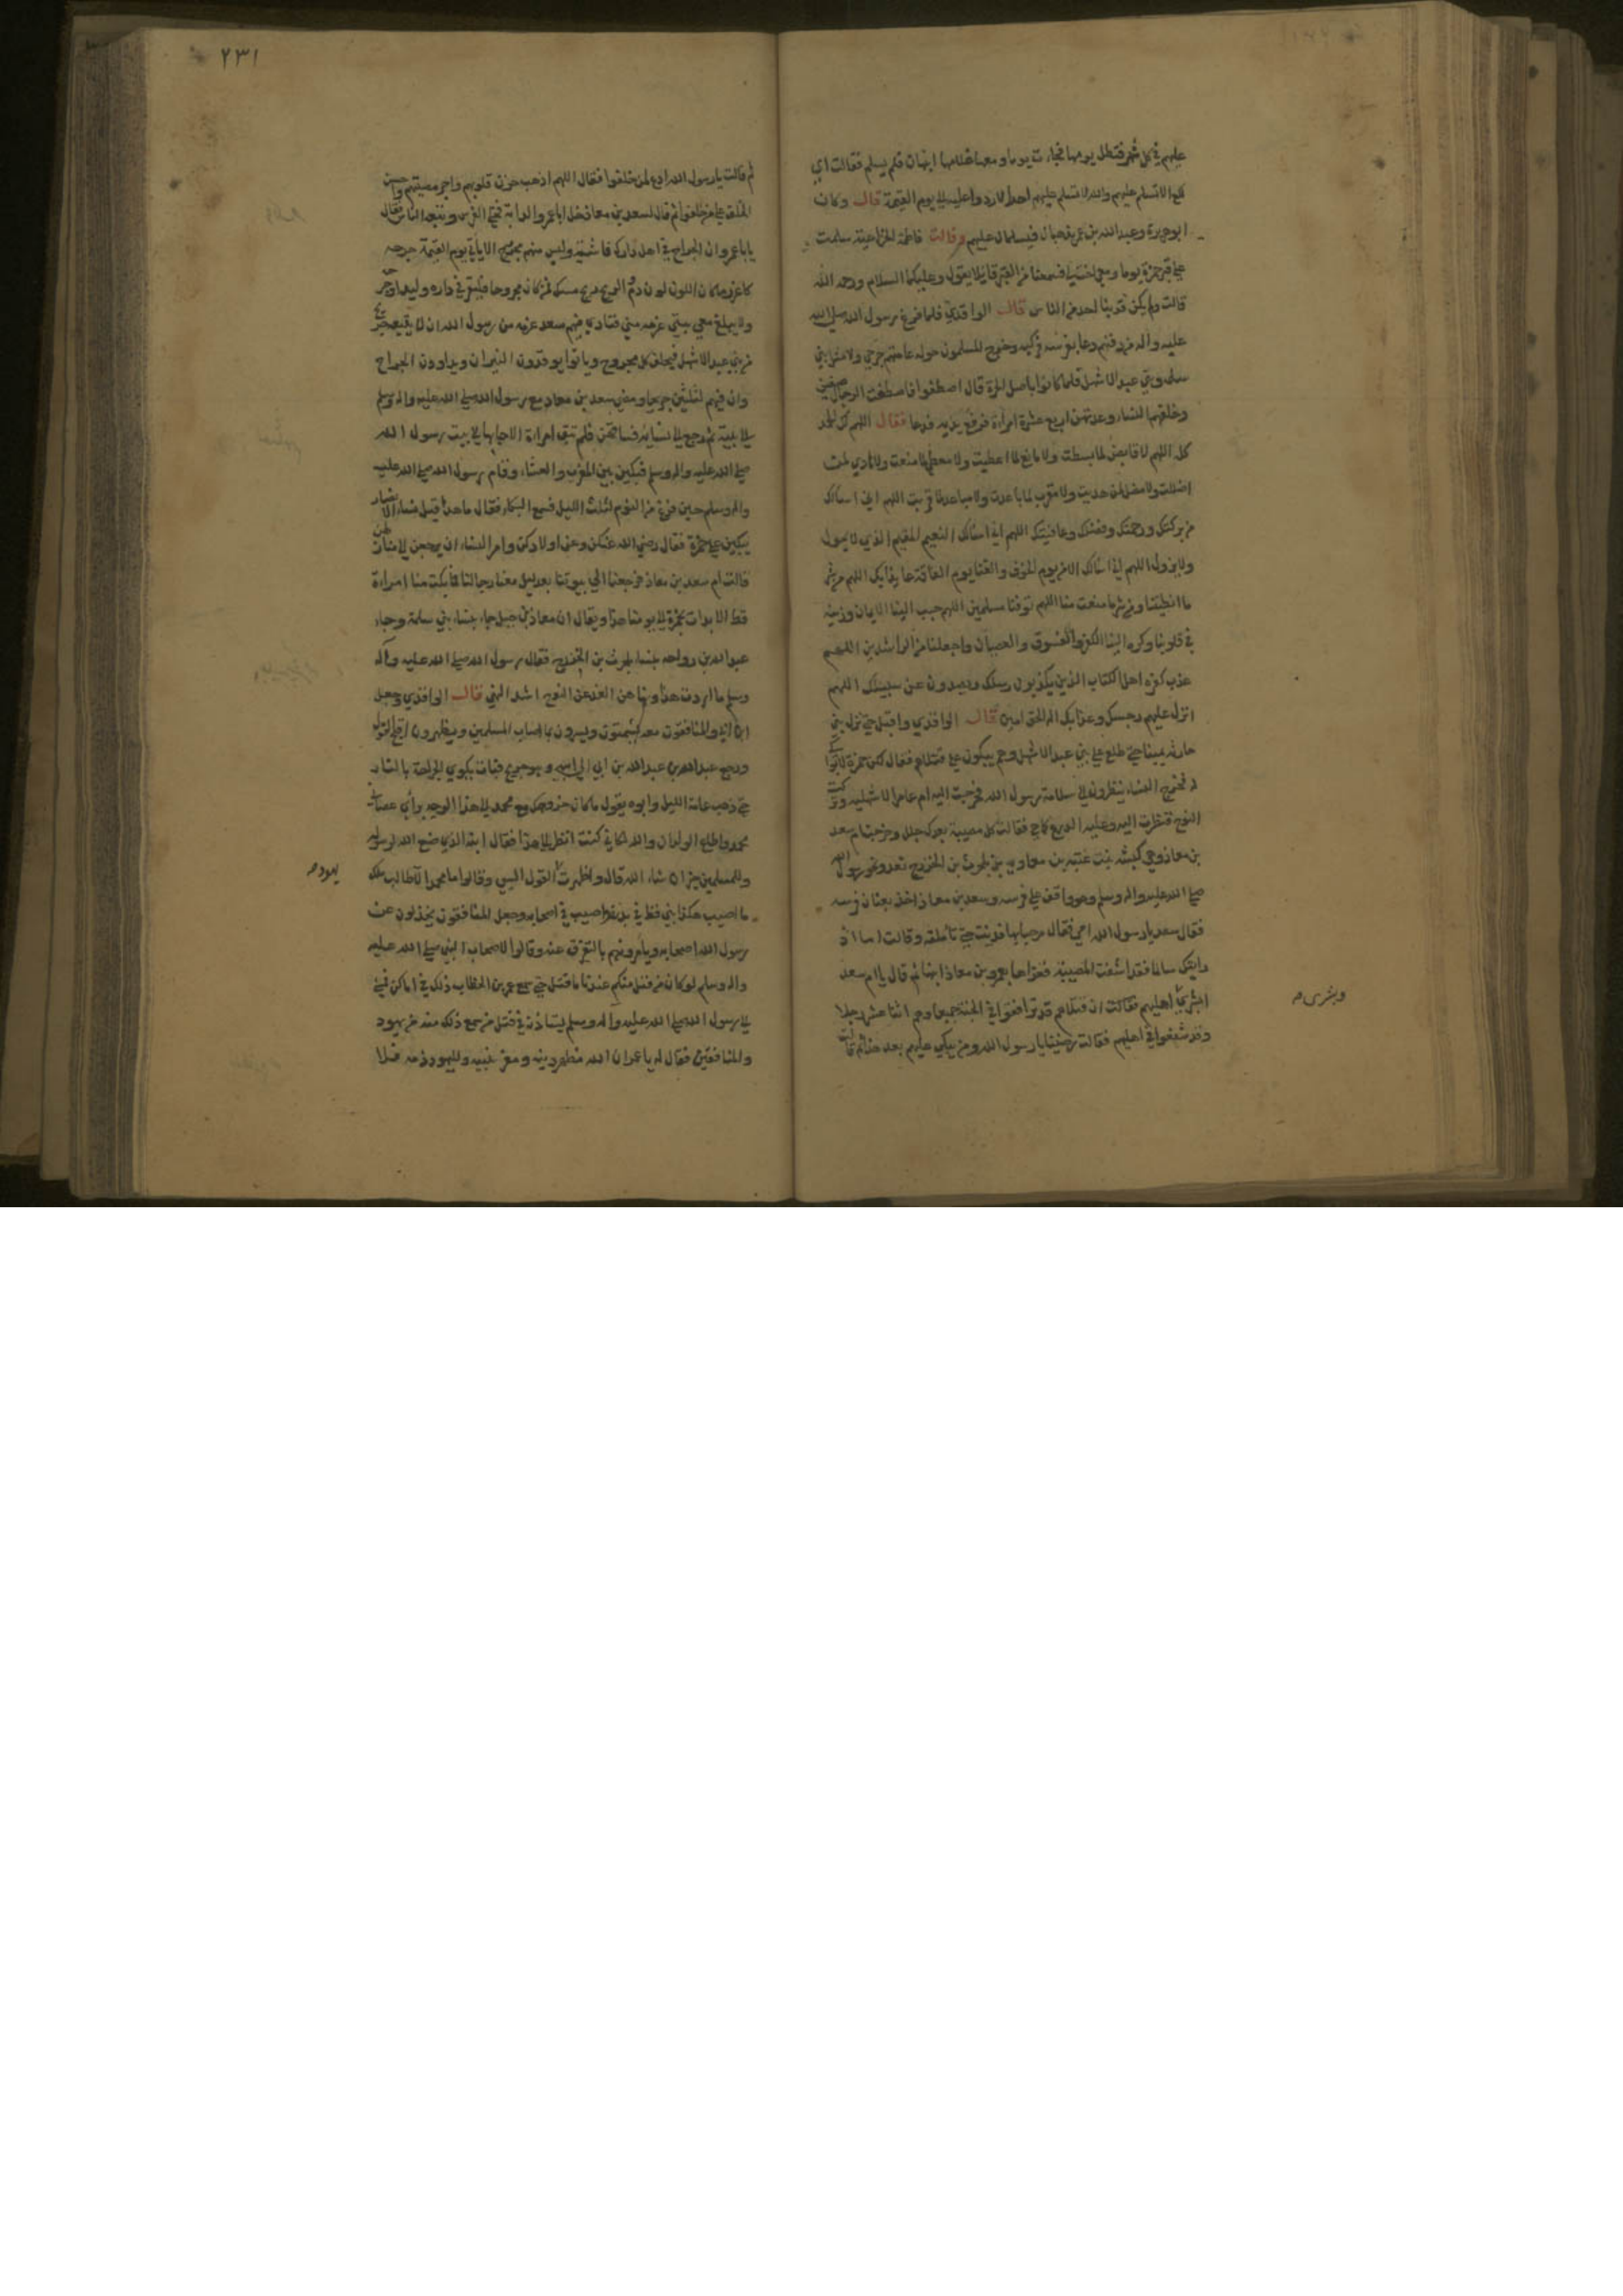 عليهم في كل شهر فتظل يومها فجاءت يوما ومعها غلامها انبهان فلم يسلم فقالت اي
لكع الا تسلم عليهم والله لا تسلم عليهم احد الا ردوا عليه الى يوم القيمة قال وكان
ابو هريرة وعبد الله بن عمر يذهبان فيسلمان عليهم وقالت فاطمة الخزاعية سلمت
على قبر حمزة يوما ومعي اخت لي فسمعنا من القبر قايلا يقول وعليكما السلام ورحمة الله
قالت ولم يكن قربنا احد من الناس قال الواقدي فلما فرغ رسول الله صلى الله
عليه واله من دفنهم دعا بفرسه فركبه وخرج المسلمون حوله عامتهم جرحى ولا مثل بني
سلمة وبني عبد الاشهل فلما كانوا باصل الحرة قال اصطفوا فاصطفت الرجال صفين
وخلفهم النساء وعدتهن اربع عشرة امراة فرفع يديه فدعا فقال اللهم لك الحمد
كله اللهم لا قابض لما بسطت ولا مانع لما اعطيت ولا معطي لما منعت ولا هادي لمن
اضللت ولا مضل لمن هديت ولا مقرب لما باعدت ولا مباعد لما قربت اللهم اني اسئلك
من بركتك ورحمتك وفضلك وعافيتك اللهم اني اسئلك النعيم المقيم الذي لا يحول
ولا يزول اللهم اني اسئلك الامن يوم الخوف والغنا يوم الفاقة عايذا بك اللهم من شر
ما انطيتنا ومن شر ما منعت منا اللهم توفنا مسلمين اللهم حبب الينا الايمان وزينه
في قلوبنا وكره الينا الكفر والفسوق والعصيان واجعلنا من الراشدين اللهم
عذب كفرة اهل الكتاب الذين يكذبون رسلك ويصدون عن سبيلك اللهم
انزل عليهم رجسك وعذابك اله الحق امين قال الواقدي واقبل حتى نزل بني
حارثة يمينا حتى طلع على بني عبد الاشهل وهم يبكون على قتلاهم فقال لكن حمزة لا بواكي
له فخرج النساء ينظرون الى سلامة رسول الله فخرجت اليه ام عامر الاشهلية وتركت
النوح فنظرت اليه وعليه الدرع كما هي فقالت كل مصيبة بعدك جلل وخرجت ام سعد
بن معاذ وهي كبشة بنت عتبة بن معاوية بن بلحرث بن الخزرج تعدو نحو رسول الله
صلى الله عليه واله وسلم وهو واقف على فرسه وسعد بن معاذ اخذ بعنان فرسه
فقال سعد يا رسول الله امي فقال مرحبا بها فدنت حتى تاملته وقالت اما اذ
رايتك سالما فقد اشفت المصيبة فعزاها بعمرو بن معاذ ابنها ثم قال يا ام سعد
ابشري اهليهم فقالت ان قتلاهم قد ترافقوا في الجنة جميعا وهم اثنا عشر رجلا
وقد شفعوا في اهليهم فقالت رضينا يا رسول الله ومن يبكي عليهم بعد هذا ثم قالت
وبشرى
٢٣١
ثم قالت يا رسول الله ادع لمن خلفوا فقال اللهم اذهب حزن قلوبهم واجر مصيبتهم واحسن
الخلف على من خلفوا ثم قال لسعد بن معاذ خل ابا عمرو الدابة فخلى الفرس وتبعه الناس فقال
يا با عمرو ان الجراح في اهل دارك فاشية وليس منهم مجروح الا ياتي يوم القيمة جرحه
كاغزر ما كان اللون لون دم والريح ريح مسك فمن كان مجروحا فليقر في داره وليداو جرحه
ولا يبلغ معي بيتي عزمة مني فنادى فيهم سعد عزمة من رسول الله ان لا يتبعه جريح
من بني عبد الاشهل فتخلف كل مجروح وباتوا يوقدون النيران ويداوون الجراح
وان فيهم لثلثين جريحا ومضى سعد بن معاذ مع رسول الله صلى الله عليه واله وسلم
الى بيته ثم رجع الى نسائه فساقهن فلم تبق امراة الا جا بها الى بيت رسول الله
صلى الله عليه واله وسلم فبكين بين المغرب والعشاء وقام رسول الله صلى الله عليه
واله وسلم حين فرغ من النوم لثلث الليل فسمع البكاء فقال ما هذا قيل نساء الانصار
يبكين على حمزة فقال رضي الله عنكن وعن اولادكن وامر النساء ان يرجعن الى منازلهن
قالت ام سعد بن معاذ فرجعنا الى بيوتنا بعد ليل معنا رجالنا فما بكت منا امراة
قط الا بدات بحمزة الى يومنا هذا ويقال ان معاذ بن جبل جاء بنساء بني سلمة وجاء
عبد الله بن رواحة بنساء بلحرث بن الخزرج فقال رسول الله صلى الله عليه واله
وسلم ما اردت هذا ونهاهن الغد عن النوح اشد النهي قال الواقدي وجعل
ابن ابي والمنافقون معه يشمتون ويسرون بما اصاب المسلمين ويظهرون اقبح القول
ورجع عبد الله بن عبد الله بن ابي الى ابيه وهو جريح فبات يكوي الجراحة بالنار
حتى ذهب عامة الليل وابوه يقول ما كان خروجك مع محمد الى هذا الوجه براي عصاني
محمد واطاع الولدان والله لكاني كنت انظر الى هذا فقال ابنه الذي صنع الله لرسوله
وللمسلمين خير ان شاء الله قال واظهرت القول السيئ وقالوا ما محمد الا طالب ملك
يهود
ما اصيب هكذا نبي قط في بدنه واصيب في اصحابه وجعل المنافقون يخذلون عن
رسول الله اصحابه ويامرونهم بالتفرق عنه وقالوا لاصحاب النبي صلى الله عليه
واله وسلم لو كان من قتل منكم عندنا ما قتل حتى سمع عمر بن الخطاب ذلك في اماكن فمشى
الى رسول الله صلى الله عليه واله وسلم يستاذنه في قتل من سمع ذلك منه من يهود
والمنافقين فقال له يا عمر ان الله مظهر دينه ومعز نبيه ولليهود ذمة فلا